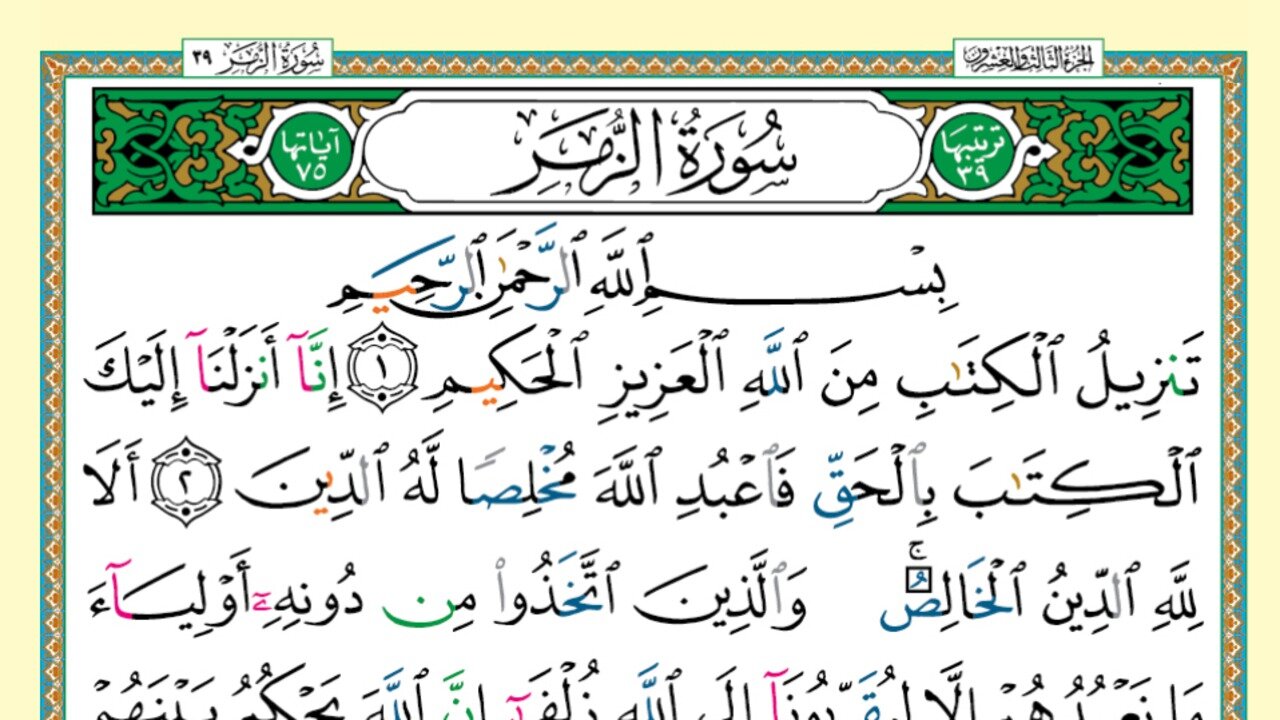 الجزء الثالث والعشرون
سُورَةُ الزُّمَرِ ٣٩
ترتيبها ٣٩
سُورَةُ الزُّمَرِ
آياتها ٧٥
بِسْمِ ٱللَّهِ ٱلرَّحْمَٰنِ ٱلرَّحِيمِ
تَنزِيلُ ٱلْكِتَٰبِ مِنَ ٱللَّهِ ٱلْعَزِيزِ ٱلْحَكِيمِ ١ إِنَّآ أَنزَلْنَآ إِلَيْكَ
ٱلْكِتَٰبَ بِٱلْحَقِّ فَٱعْبُدِ ٱللَّهَ مُخْلِصًا لَّهُ ٱلدِّينَ ٢ أَلَا
لِلَّهِ ٱلدِّينُ ٱلْخَالِصُ ۚ وَٱلَّذِينَ ٱتَّخَذُوا۟ مِن دُونِهِۦٓ أَوْلِيَآءَ
مَا نَعْبُدُهُمْ إِلَّا لِيُقَرِّبُونَآ إِلَى ٱللَّهِ زُلْفَىٰٓ إِنَّ ٱللَّهَ يَحْكُمُ بَيْنَهُمْ